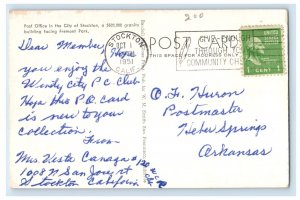 200
Post Office in the City of Stockton, a $600,000 granite
building facing Fremont Park.
POST CARD
FOR ADDRESS ONLY
STOCKTON
OCT 1
1951
CALIF.
GIVE ENOUGH
THROUGH YOUR
COMMUNITY CHEST
1 CENT 1
Dear Member, Hope
you enjoy the
Windy City P.C Club.
Hope this P.O. Card
is new to your
collection.
From
Mrs. Vesta Canaga #120 W.C.P.C.
1008 N San Joaquin st
Stockton California
O.F. Huron
Postmaster
Heber Springs
Arkansas